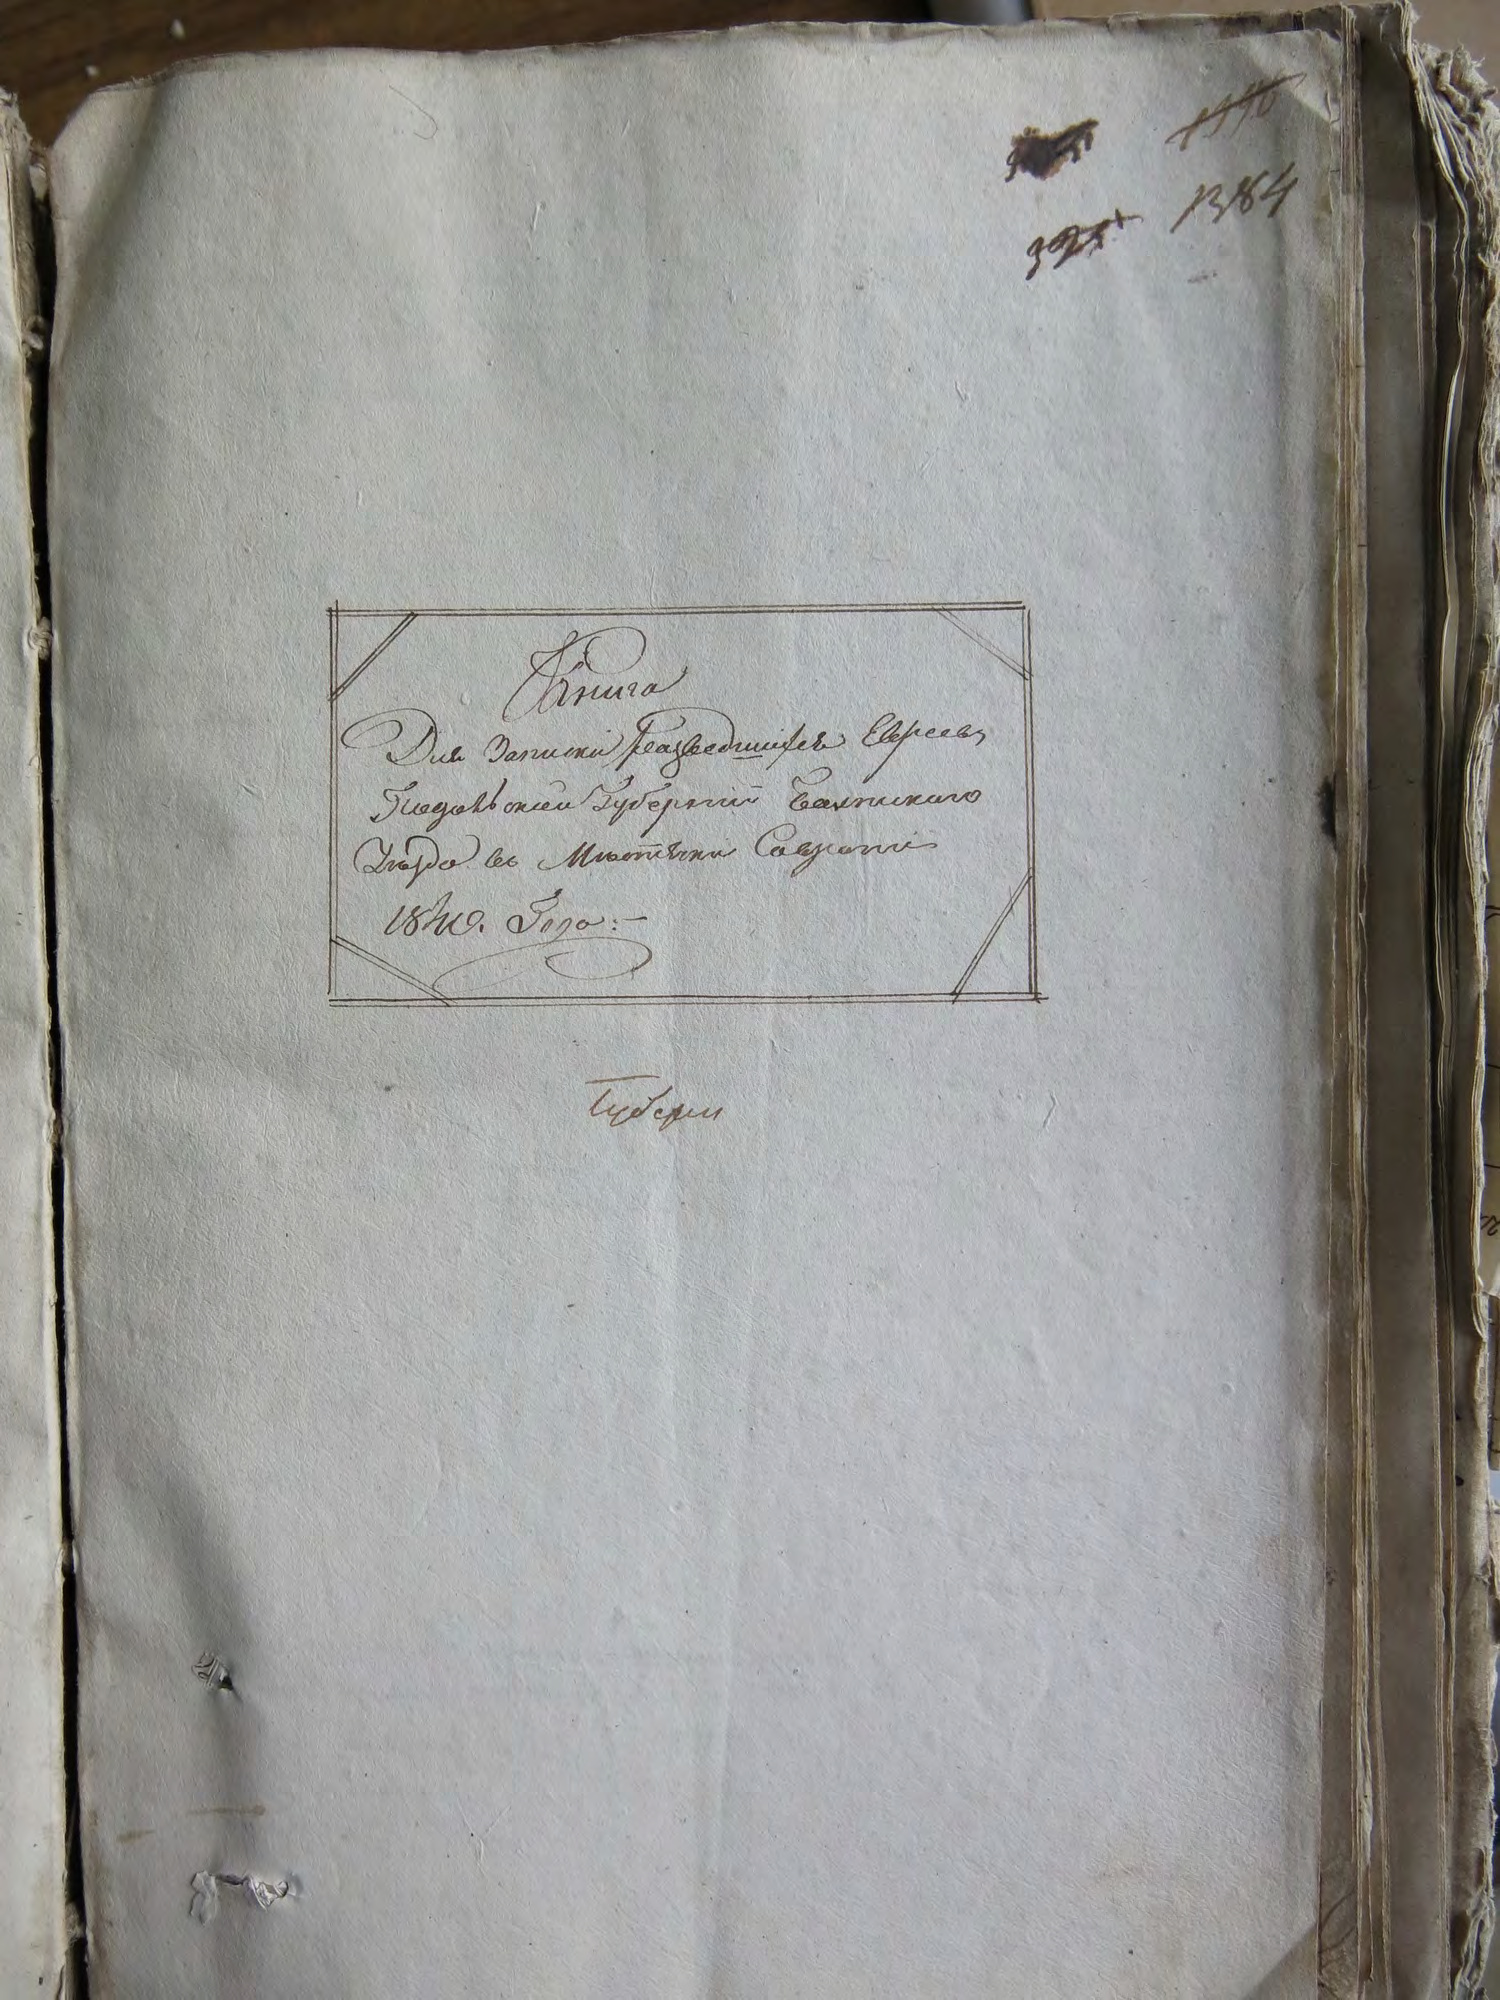 1384
Книга
Для Записки Разведшихся Евреевъ
Подольской Губерніи Балтскаго
Уѣзда въ Мѣстечки Саврани
1840. Года:—
Губерн